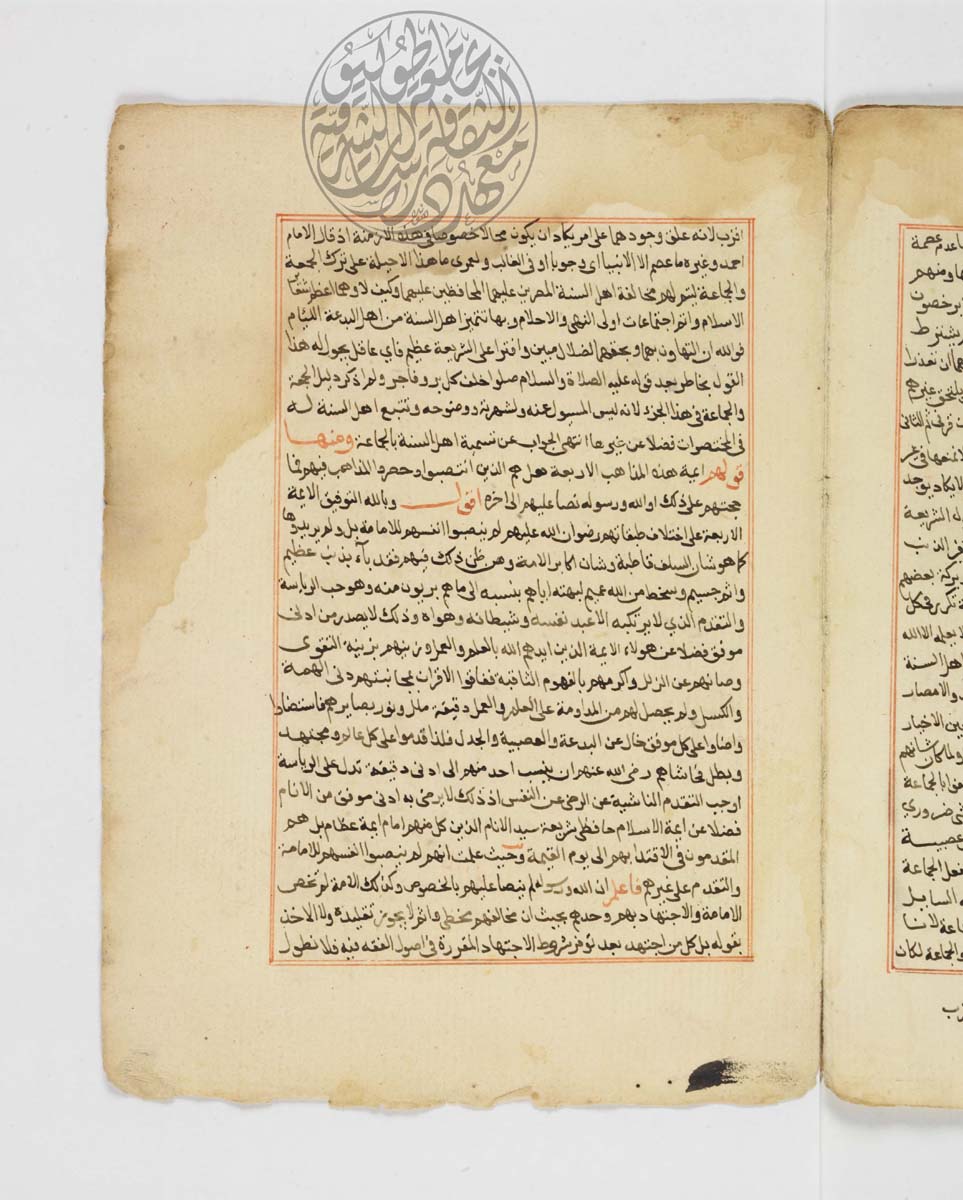 بجامعة طوكيو
الثقافة الشرقية
معهد دراسات
اقرب لانه علق وجودهما على امر يكاد ان يكون محالا خصوصا في هذه الازمنة اذ قال الامام
احمد وغيره ما عصم الا الانبيا اي وجوبا او في الغالب ولعمرى ما هذا الا حيلة على ترك الجمعة
والجماعة ليتم لهم مخالفة اهل السنة المصرين عليهما المحافظين عليهما وكيف لا وهما اعظم شعاير
الاسلام واتم اجتماعات اولى النهى والاحلام وبها تتميز اهل السنة من اهل البدعة الليام
فوالله ان التهاون بهما وبحقهم الضلال مبين وافترا على الشريعة عظيم فاي عاقل يجول له هذا
القول بخاطر بعد قوله عليه الصلاة والسلام صلوا خلف كل بر وفاجر ولم اذكر دليل الجمعة
والجماعة في هذا الجزء لانه ليس المسيول عنه ولشهرته ووضوحه وتتبع اهل السنة له
في المختصرات فضلا عن غيرها انتهى الجواب عن تسمية اهل السنة بالجماعة ومنها
قولهم ايمة هذه المذاهب الاربعة هل هم الذين انتصبوا وحصروا المذاهب فيهم فما
حجتهم على ذلك او الله ورسوله نصا عليهم الى اخره اقول وبالله التوفيق الايمة
الاربعة على اختلاف طبقاتهم رضوان الله عليهم لم ينصبوا انفسهم للامامة بل ولم يريدوها
كما هو شان السلف قاطبة وشان اكابر الامة ومن ظن ذلك فيهم فقد بآء بذنب عظيم
واثم جسيم وسخط من الله عميم لبهته اياهم بنسبه الى ما هم بريون منه وهو حب الرياسة
والتقدم الذي لا يرتكبه الا عبد نفسه وشيطانه وهواه وذلك لا يصدر من ادنى
موفق فضلا عن هولاء الايمة الذين ايدهم الله بالعلم والعمل وزينهم بزينة التقوى
وصانهم عن الزلل واكرمهم بالفهوم الثاقبة ففاقوا الاقران بمجانبتهم دنى الهمة
والكسل ولم يحصل لهم من المداومة على العلم والعمل دقيقة ملل ونور بصايرهم فاستضاوا
واضاوا على كل موفق خال عن البدعة والعصبية والجدل فلذا قدموا على كل عالم ومجتهد
وبطل فحاشاهم رضى الله عنهم ان ينسب احد منهم الى ادنى دقيقة تدل على الرياسة
او حب التقدم الناشية عن الرضى عن النفس اذ ذلك لا يرضى به ادنى موفق من الانام
فضلا عن ايمة الاسلام حافظي شريعة سيد الانام الذين كل منهم امام ايمة عظام بل هم
المقدمون في الاقتدا بهم الى يوم القيمة وحيث علمت انهم لم ينصبوا انفسهم للامامة
والتقدم على غيرهم فاعلم ان الله ورسوله لم ينصا عليهم بالخصوص وكذلك الامة لم تخص
الامامة والاجتهاد بهم وحدهم بحيث ان مخالفهم مخطي واثم لا يجوز تقليده ولا الاخذ
بقوله بل كل من اجتهد بعد توفر شروط الاجتهاد المقررة في اصول الفقه فيه فلا نطول
اعدم عصمة
ها ومنهم
يرخصون
يشترط
هم ان تعذرا
يلتحق غيرهم
قرني ثم الثاني
لا يكاد يوجد
له الشريعة
بركة بعضهم
تكرر في كل
يعلمه الا الله
اهل السنة
والامصار
ين الاخبار
ولما كان شانهم
ابالجماعة
ضروري
عصبية
فعل الجماعة
السايل
اعة لانا
والجماعة لكان